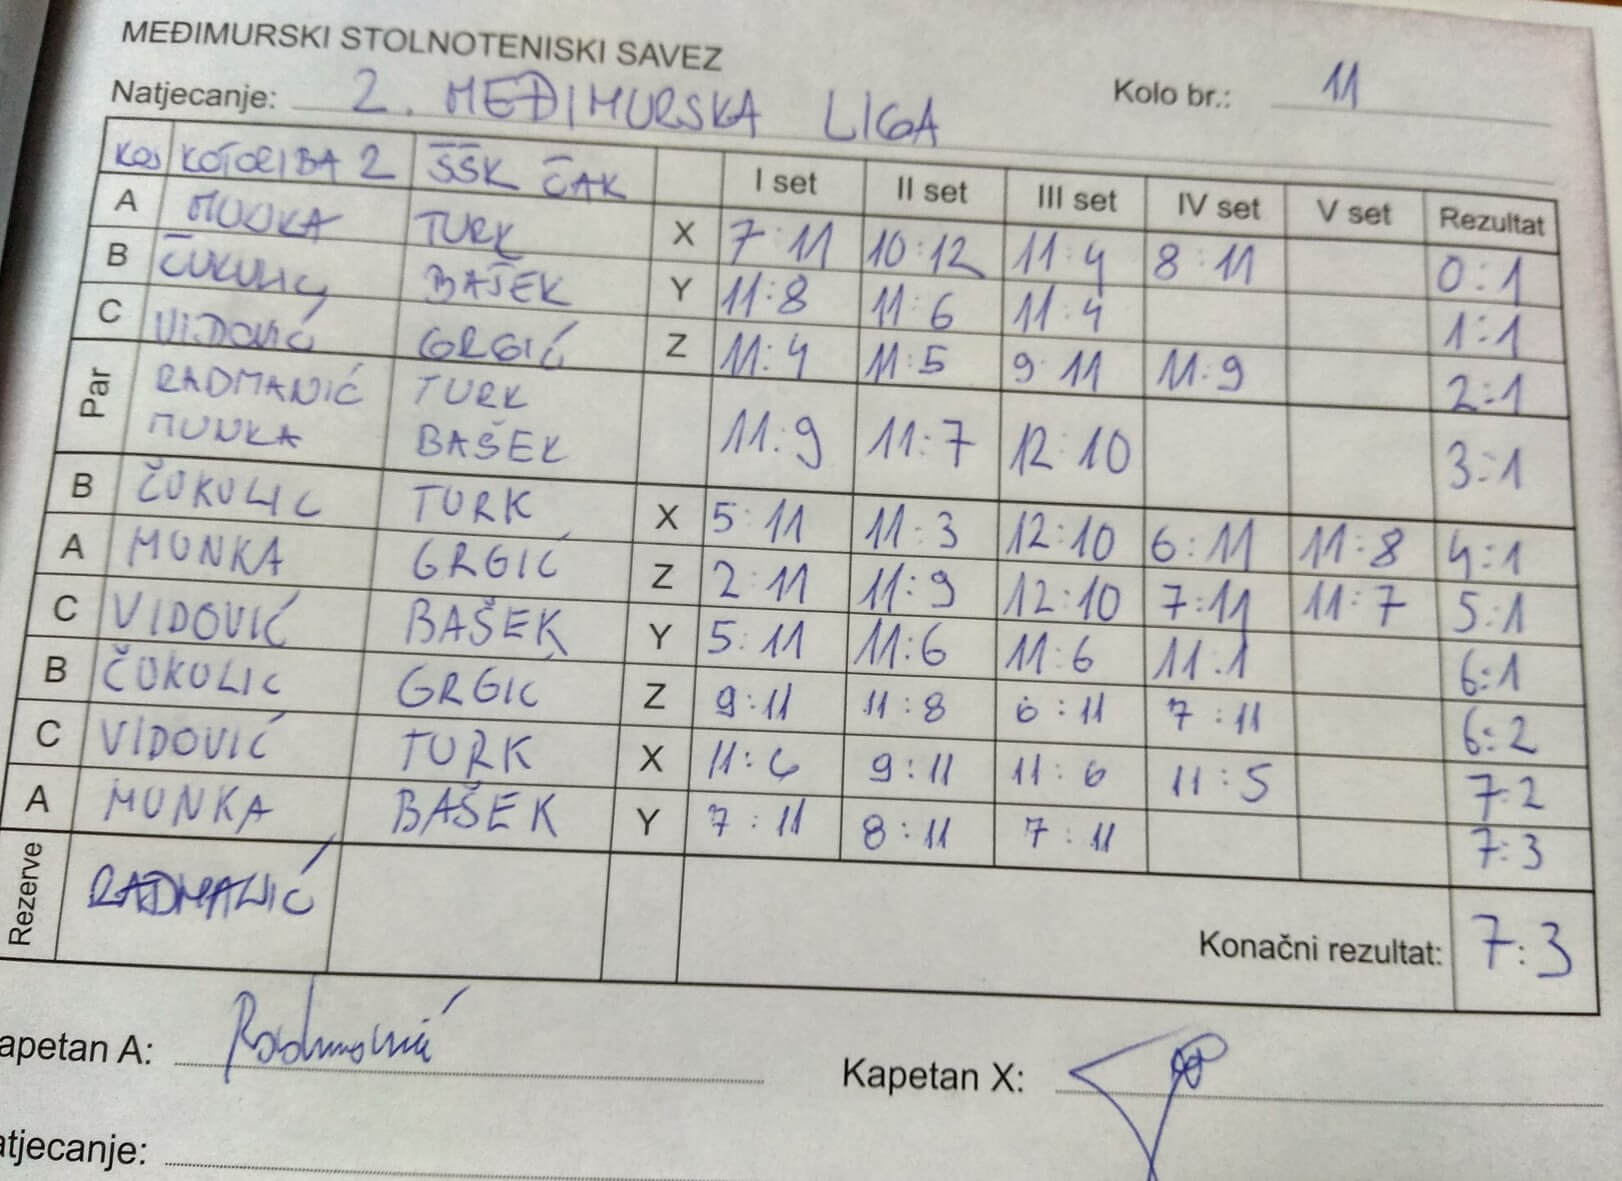 MEĐIMURSKI STOLNOTENISKI SAVEZ
Natjecanje: 2. MEĐIMURSKA LIGA Kolo br.: 11
KOTORIBA 2 ŠŠK ČAK I set II set III set IV set V set Rezultat
A MUNKA TURK X 7:11 10:12 11:4 8:11 0:1
B ČUKULIĆ BAŠEK Y 11:8 11:6 11:4 1:1
C VIDOVIĆ GRGIĆ Z 11:4 11:5 9:11 11:9 2:1
Par RADMANIĆ TURK
MUNKA BAŠEK 11:9 11:7 12:10 3:1
B ČUKULIC TURK X 5:11 11:3 12:10 6:11 11:8 4:1
A MUNKA GRGIĆ Z 2:11 11:9 12:10 7:11 11:7 5:1
C VIDOVIĆ BAŠEK Y 5:11 11:6 11:6 11:1 6:1
B ČUKULIC GRGIC Z 9:11 11:8 6:11 7:11 6:2
C VIDOVIĆ TURK X 11:6 9:11 11:6 11:5 7:2
A MUNKA BAŠEK Y 7:11 8:11 7:11 7:3
Rezerve RADMANIĆ Konačni rezultat: 7:3
apetan A: Radmanić Kapetan X:
atjecanje: